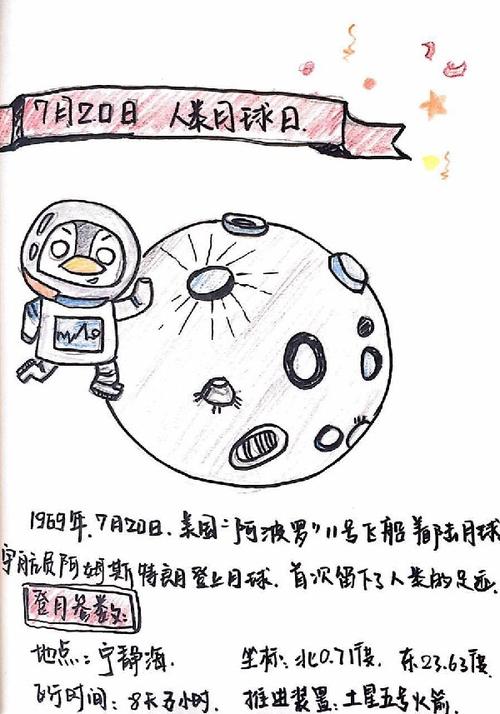 7月20日 人类月球日.
1969年.7月20日.美国“阿波罗”11号飞船着陆月球
宇航员阿姆斯特朗登上月球.首次留下了人类的足迹.
登月参数:
地点:宁静海.
坐标:北0.71度. 东23.63度.
飞行时间:8天五小时.
推进装置:土星五号火箭.